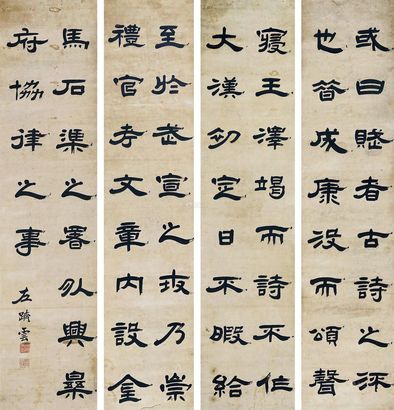 或曰賦者古詩之流
也昔成康沒而頌聲
寢王澤竭而詩不作
大漢初定日不暇給
至於武宣之世乃崇
禮官考文章內設金
馬石渠之署外興樂
府協律之事
左躋雲